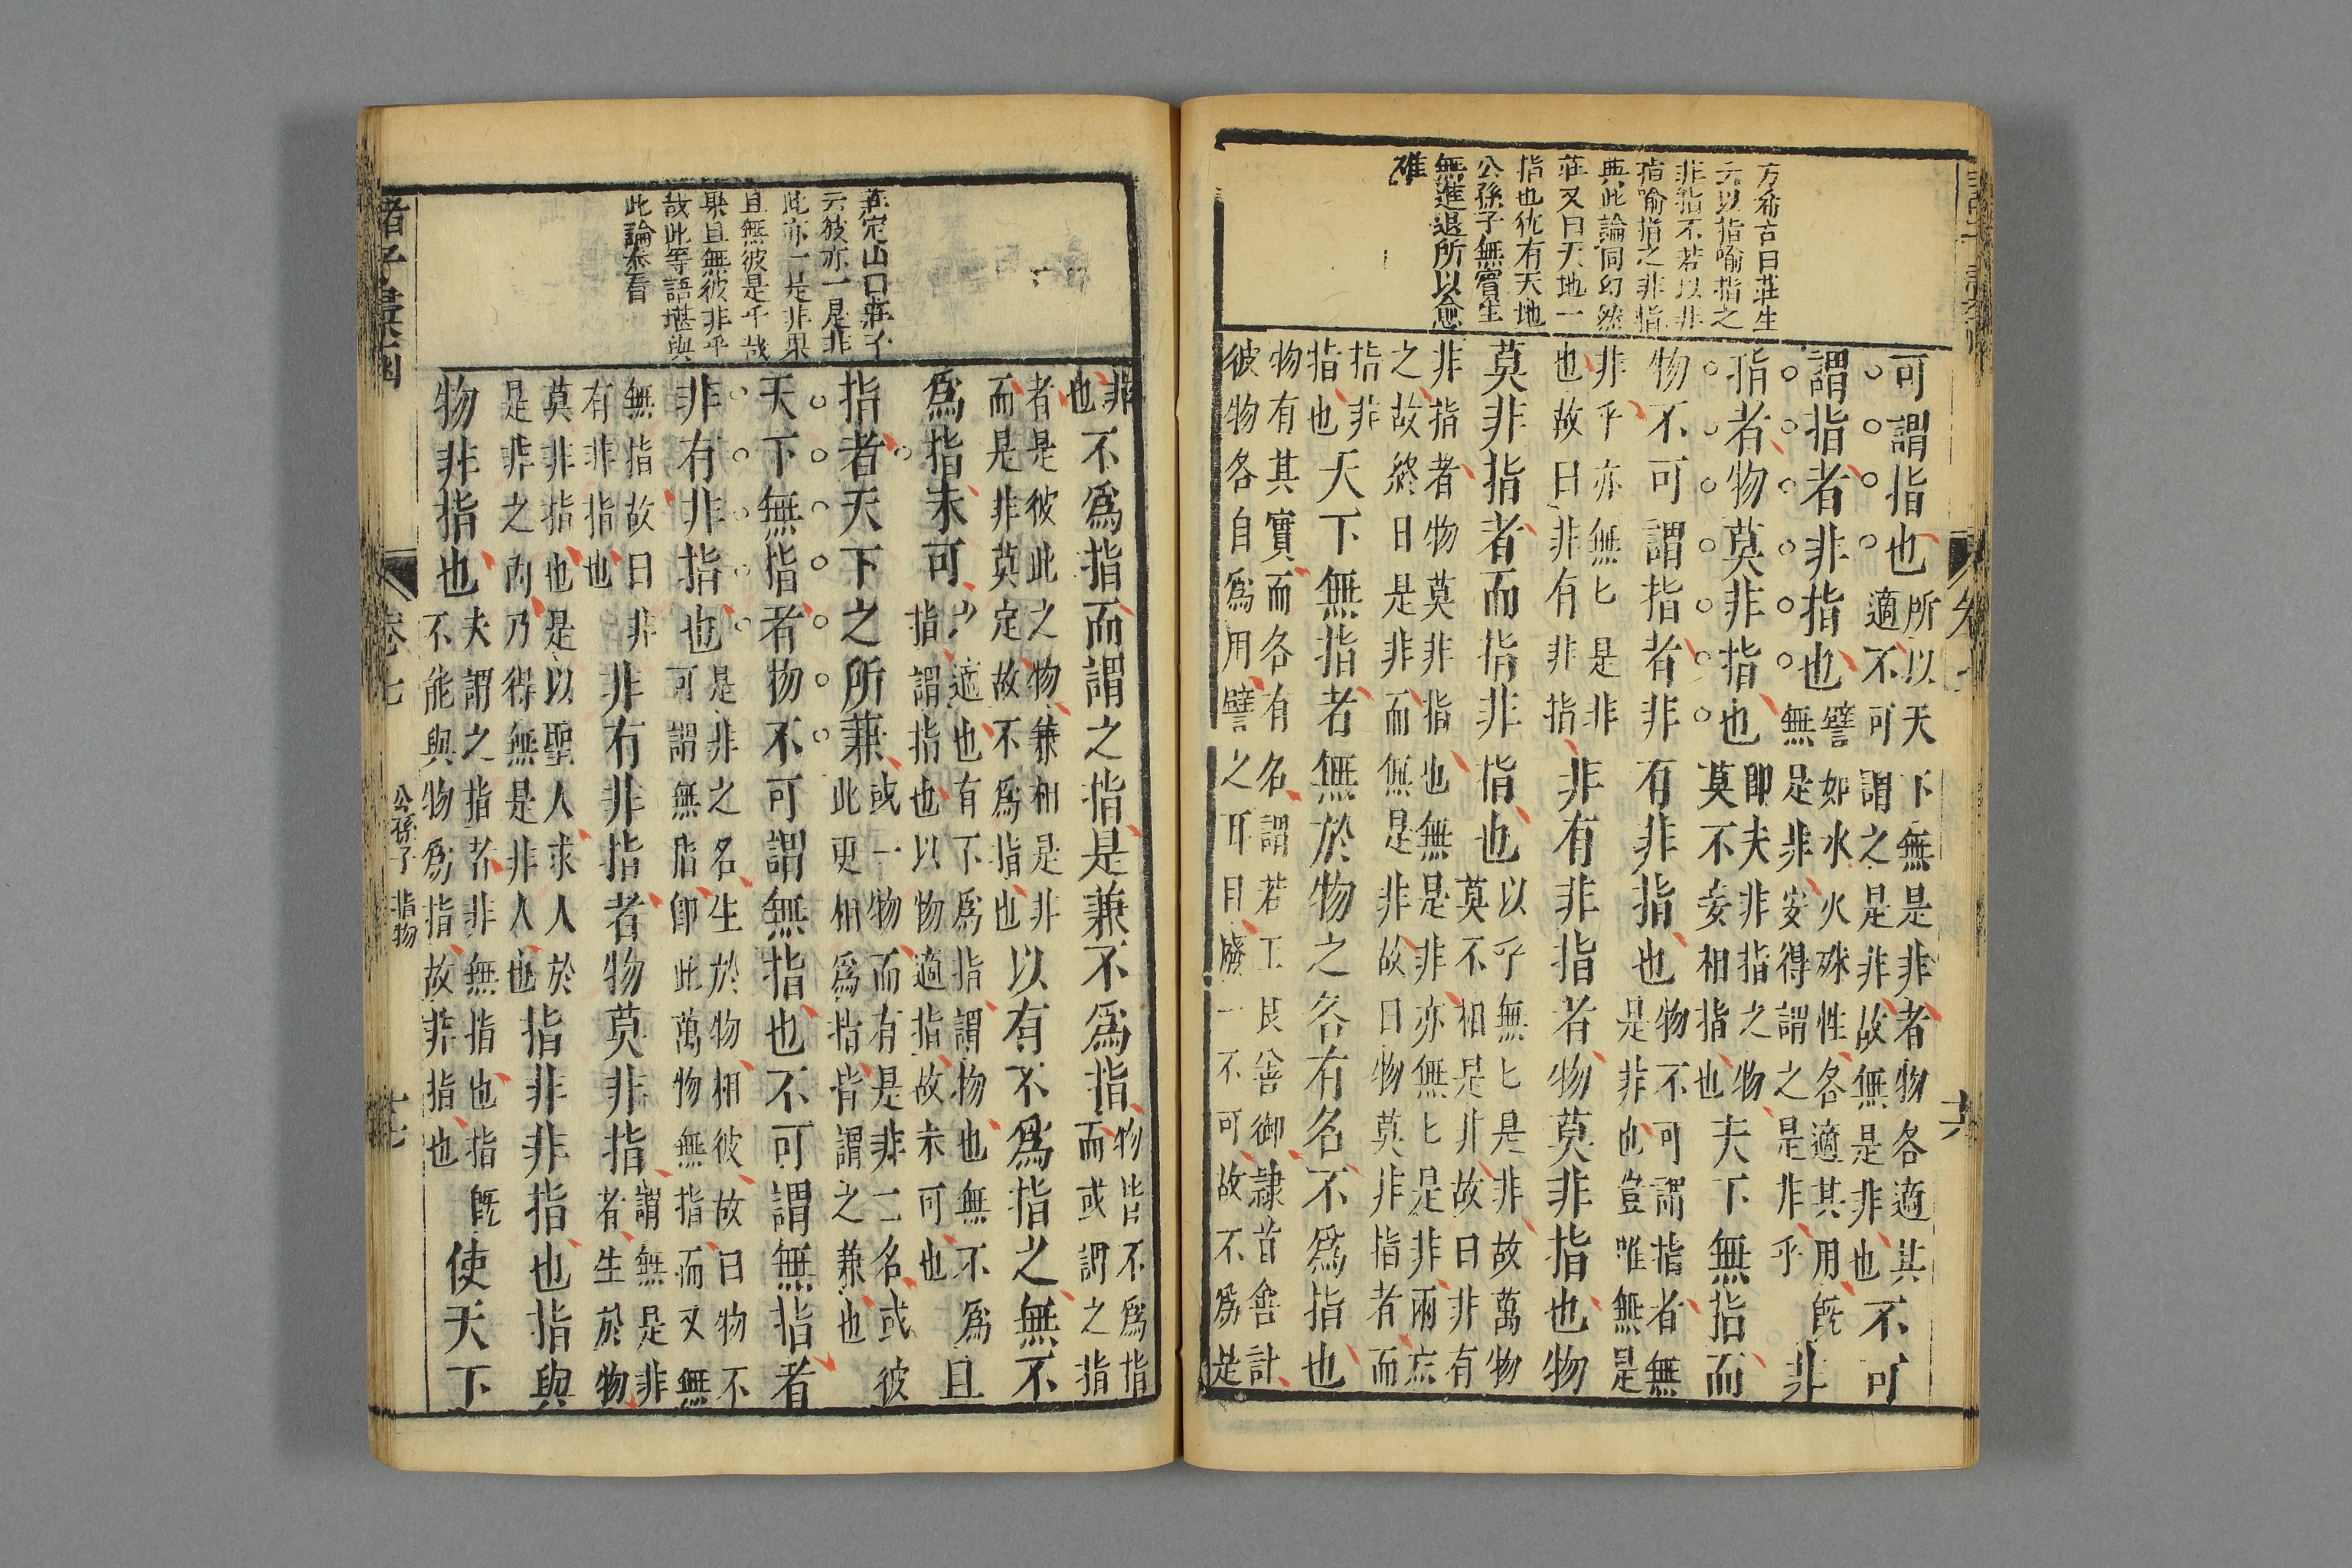 方希古曰莊生
云以指喻指之
非指不若以非
指喻指之非指
與此論同幻然
莊又曰天地一
指也仇有天地
公孫子無實生
無進退所以愈
碓
可謂指也所以天下無是非者物各適其
適不可謂之是非故無是非也不可
謂指者非指也譬如水火殊性各適其用既
無是非安得謂之是非乎非
指者物莫非指也即夫非指之物
莫不妄相指也夫下無指而
物不可謂指者非有非指也物不可謂指者無
是非也豈唯無是
非乎亦無匕是非
也故曰非有非指非有非指者物莫非指也物
莫非指者而指非指也以乎無匕是非故萬物
莫不相是非故曰非有
非指者物莫非指也無是非亦無匕是非兩忘
之故終日是非而無是非故曰物莫非指者而
指非
指也天下無指者無於物之各有名不爲指也
物有其實而各有名謂若王良善御隷首善計
彼物各自爲用譬之耳目廢一不可故不爲是
卷七
六
莊定山曰莊子
云彼亦一是非
此亦一是非果
且無彼是乎哉
果且無彼非乎
哉此等語堪與
此論叅看
非
也不爲指而謂之指是兼不爲指物皆不爲指
而或謂之指
者是彼此之物兼相是非
而是非莫定故不爲指也以有不爲指之無不
爲指未可少適也有下爲指謂物也無不爲
指謂指也以物適指故未可也且
指者天下之所兼或一物而有是非二名或彼
此更相爲指皆謂之兼也
天下無指者物不可謂無指也不可謂無指者
非有非指也是非之名生於物相彼故曰物不
可謂無指卽此萬物無指而又無
無指故曰非
有非指也非有非指者物莫非指謂無是非
者生於物
莫非指也是以聖人求人於
是非之内乃得無是非人也指非非指也指與
物非指也夫謂之指者非無指也指既
不能與物爲指故非指也使天下
諸子彙函
卷七
公孫子
指物
十七